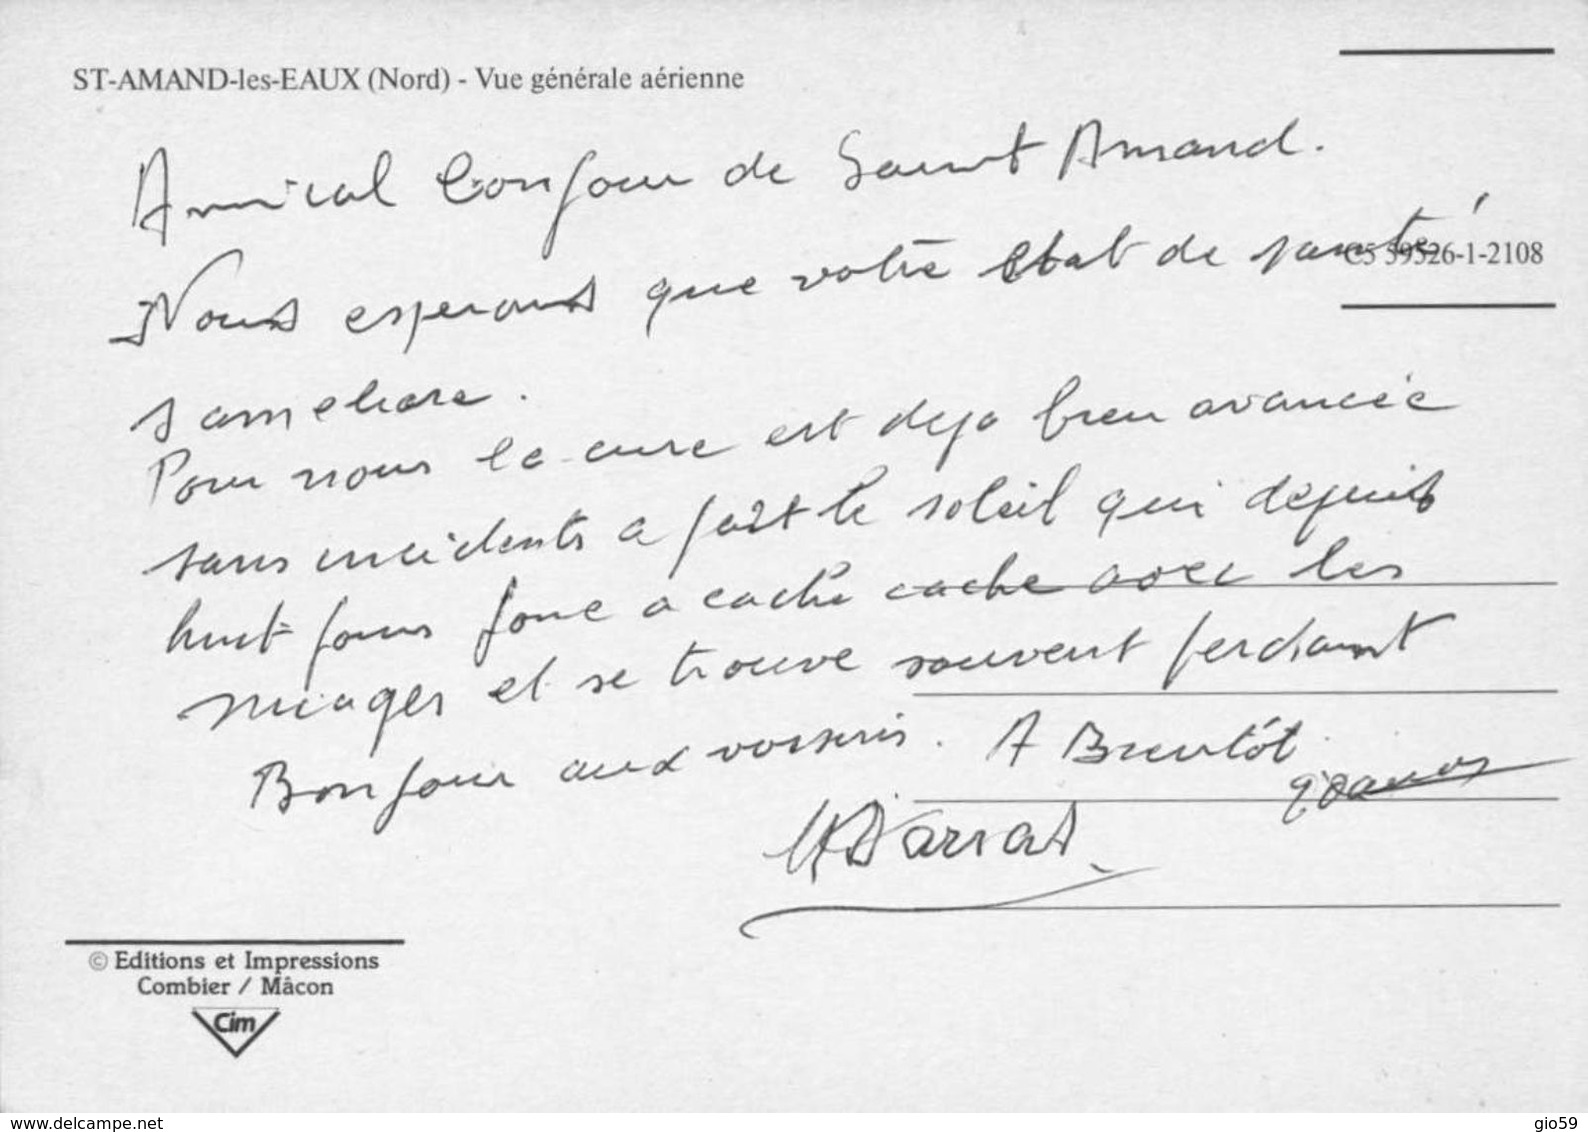 ST-AMAND-les-EAUX (Nord) - Vue générale aérienne
Amical bonjour de Saint Amand.
Nous esperons que votre etat de santé
C5 59526-1-2108
s ameliore.
Pour nous la cure est deja bien avancée
sans incidents a part le soleil qui depuis
huit jours joue a cache cache avec les
nuages et se trouve souvent perdant
Bonjour aux voisins. A Bientôt
© Editions et Impressions
Combier / Mâcon
Cim
www.delcampe.net
gio59